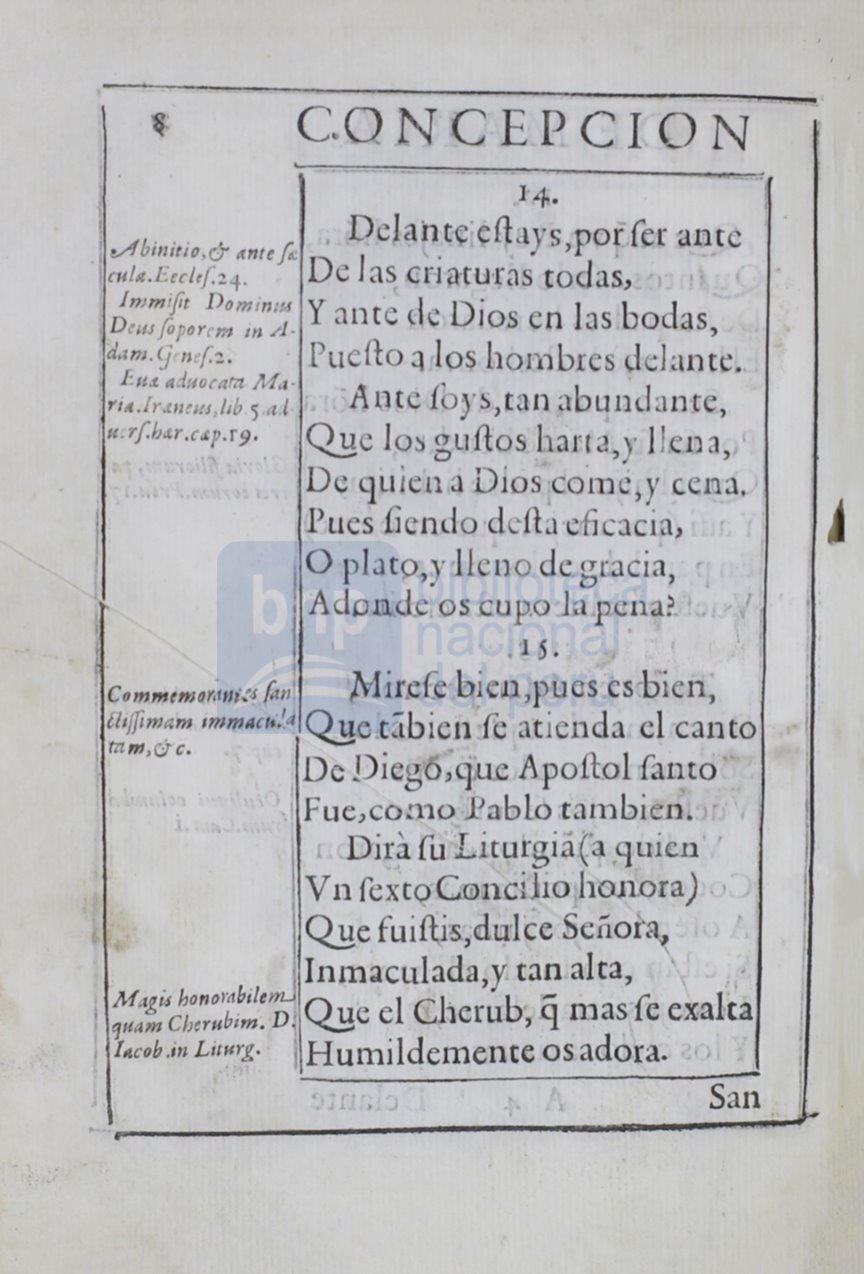 8
CONCEPCION
14.
Delante eſtays,por ſer ante
De las criaturas todas,
Y ante de Dios en las bodas,
Pueſto a los hombres delante.
Ante ſoys,tan abundante,
Que los guſtos harta,y llena,
De quien a Dios come,y cena.
Pues ſiendo deſta eficacia,
O plato,y lleno de gracia,
Adonde os cupo la pena?
15.
Mireſe bien,pues es bien,
Que tãbien ſe atienda el canto
De Diego,que Apoſtol ſanto
Fue,como Pablo tambien.
Dirà ſu Liturgia(a quien
Vn ſexto Concilio honora)
Que fuiſtis,dulce Señora,
Inmaculada,y tan alta,
Que el Cherub, q̃ mas ſe exalta
Humildemente os adora.
San
Abinitio,& ante ſæ
cula.Eccleſ.24.
Immiſit Dominus
Deus ſoporem in A-
dam.Geneſ.2.
Euæ aduocata Ma-
ria.Iræneus,lib 5.ad
uerſ.hær.cap.19.
Commemorantes ſan
ctiſſimam immacula
tam,&c.
Magis honorabilem
quam Cherubim. D.
Iacob.in Liturg.
bnp
biblioteca
nacional
del perú